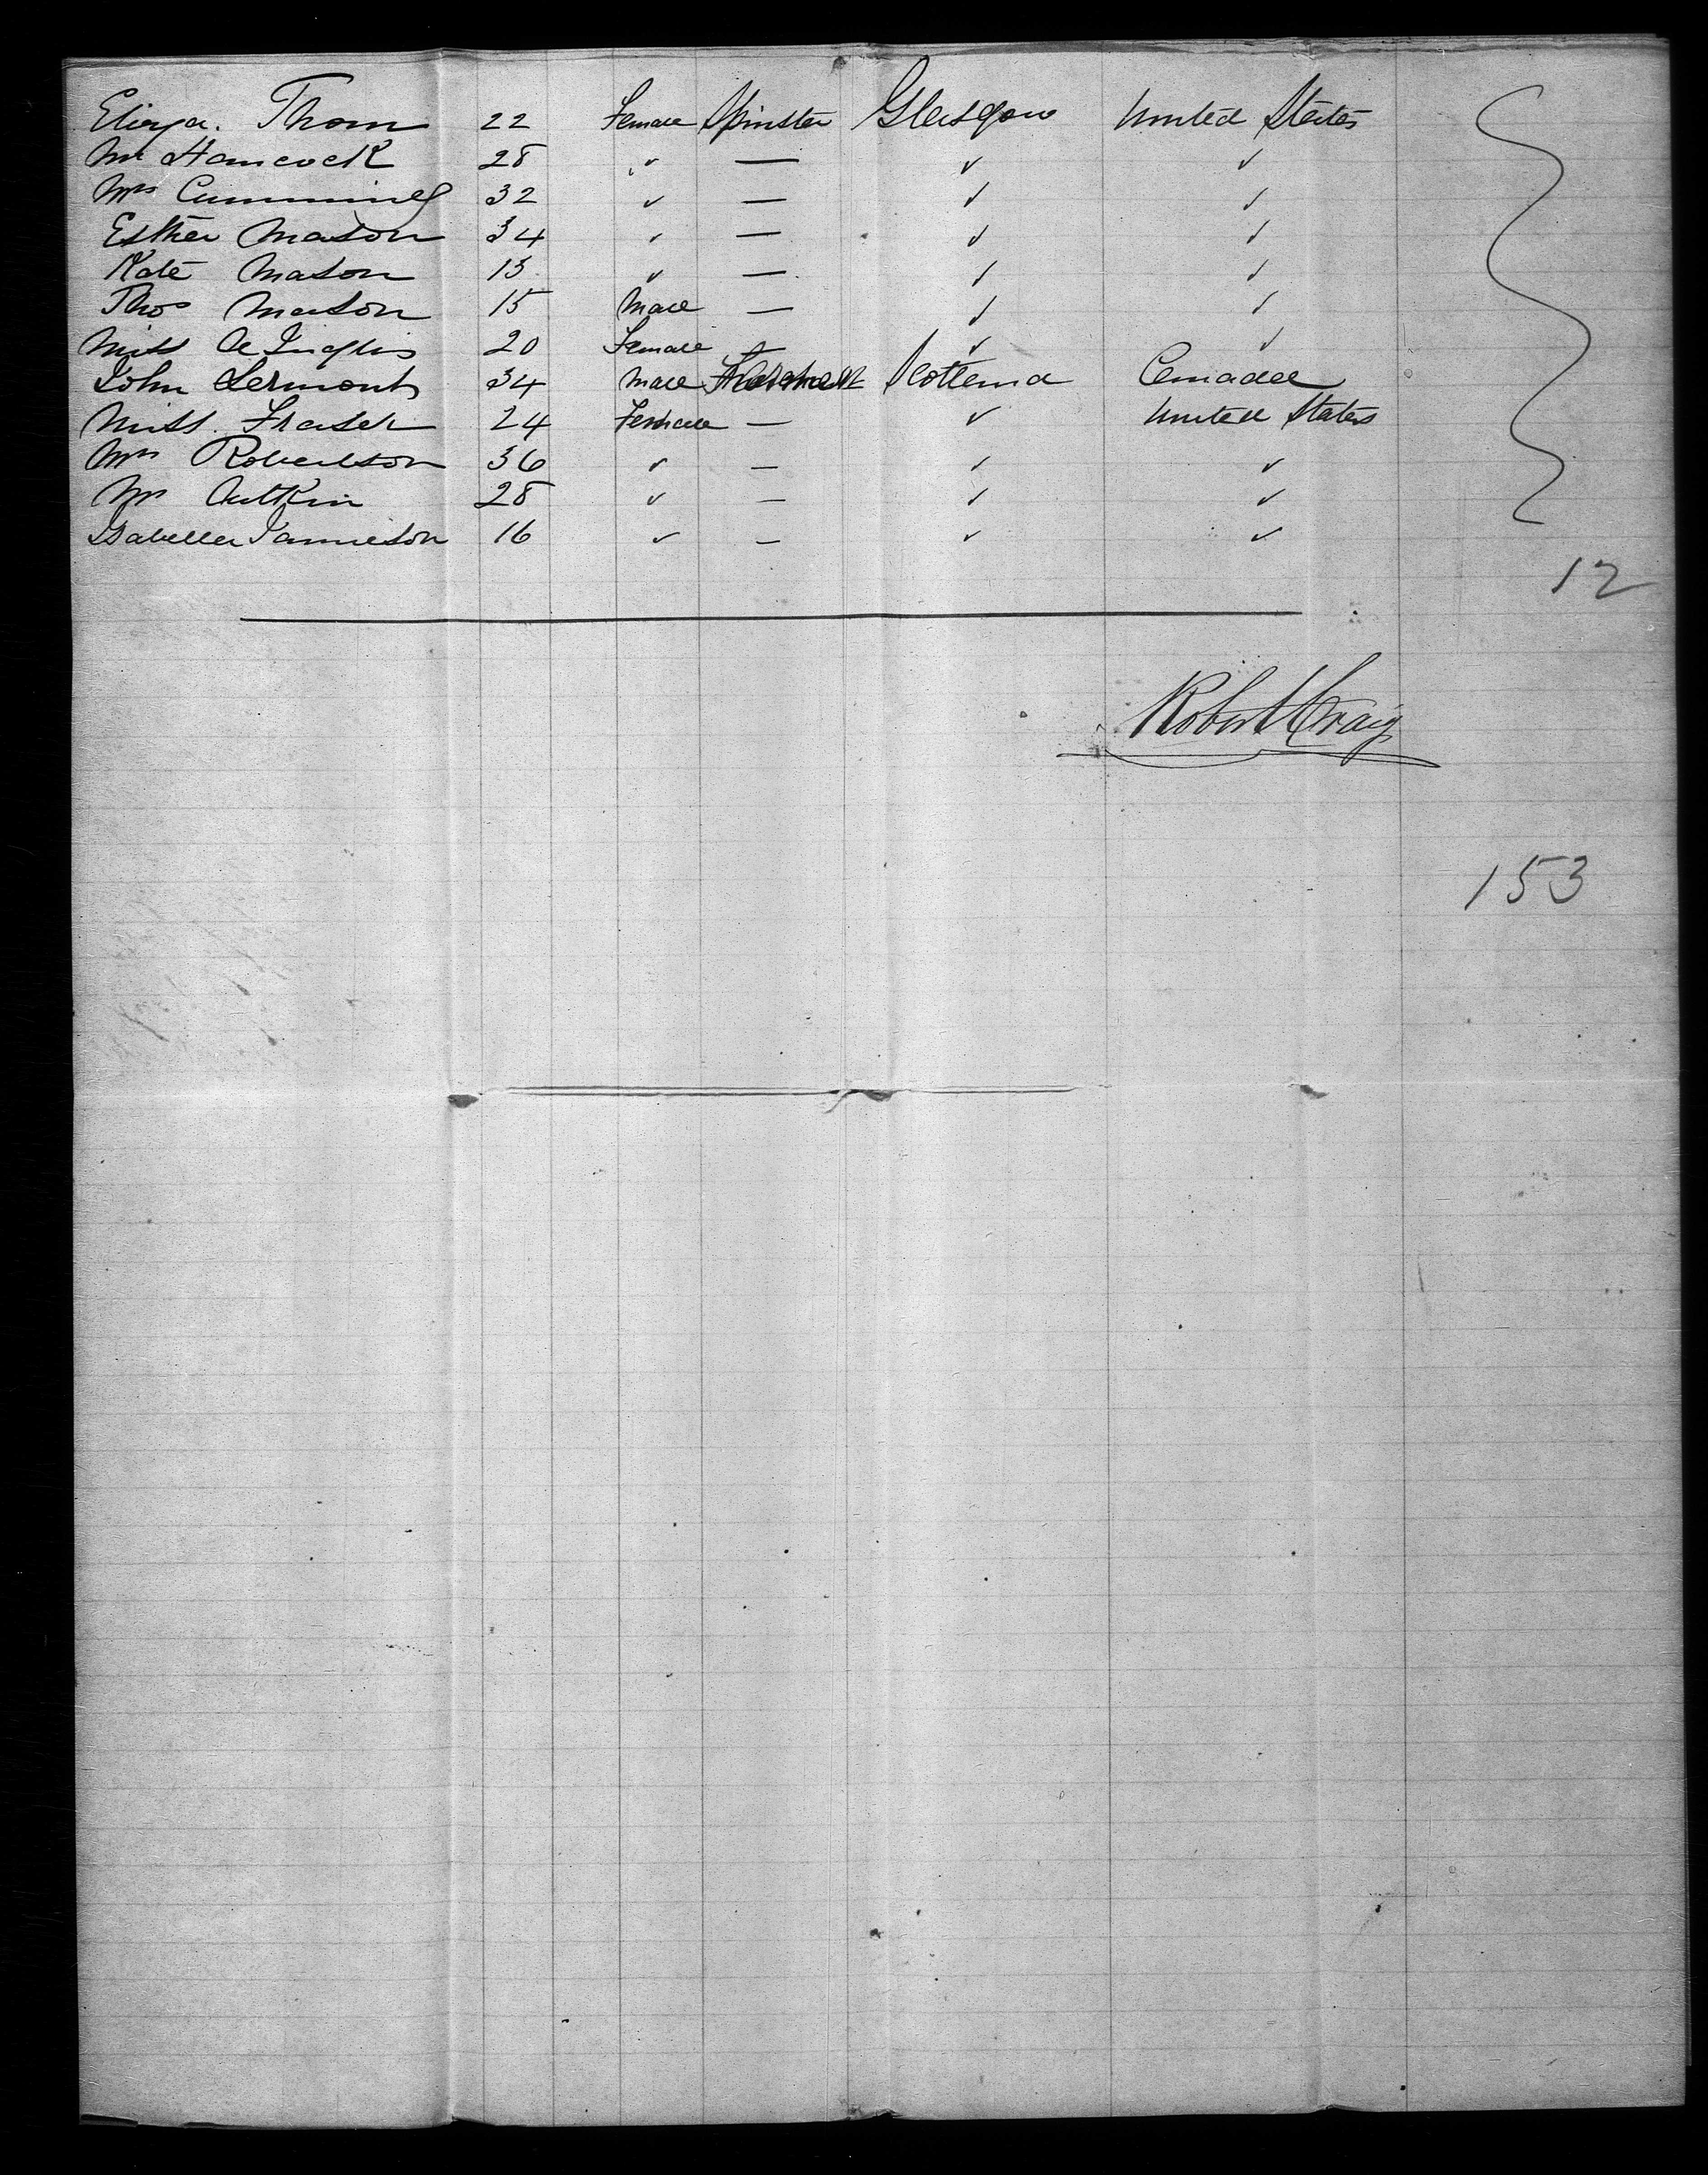 Eliza. Thom 22 Female Spinster Glasgow United States
Mrs Hancock 28 ✓ — ✓ ✓
Mrs Cumming 32 ✓ — ✓ ✓
Esther Mason 34 ✓ — ✓ ✓
Kate Mason 13 ✓ — ✓ ✓
Thos Mason 15 Male — ✓ ✓
Miss A Inglis 20 Female — ✓ ✓
John Lermont 34 Male Scotland Canada
Miss. Fraser 24 Female — ✓ United States
Mrs Robertson 36 ✓ — ✓ ✓
Mrs Aitkin 28 ✓ — ✓ ✓
Isabella Jamieson 16 ✓ — ✓ ✓
12
Robert Craig
153